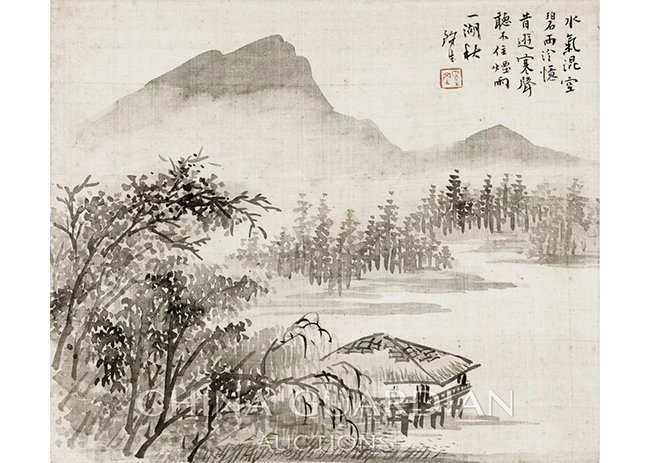 水氣混空
碧雨冷憶
昔遊寒聲
聽不住煙雨
一湖秋
CHINA GUARDIAN
AUCTIONS